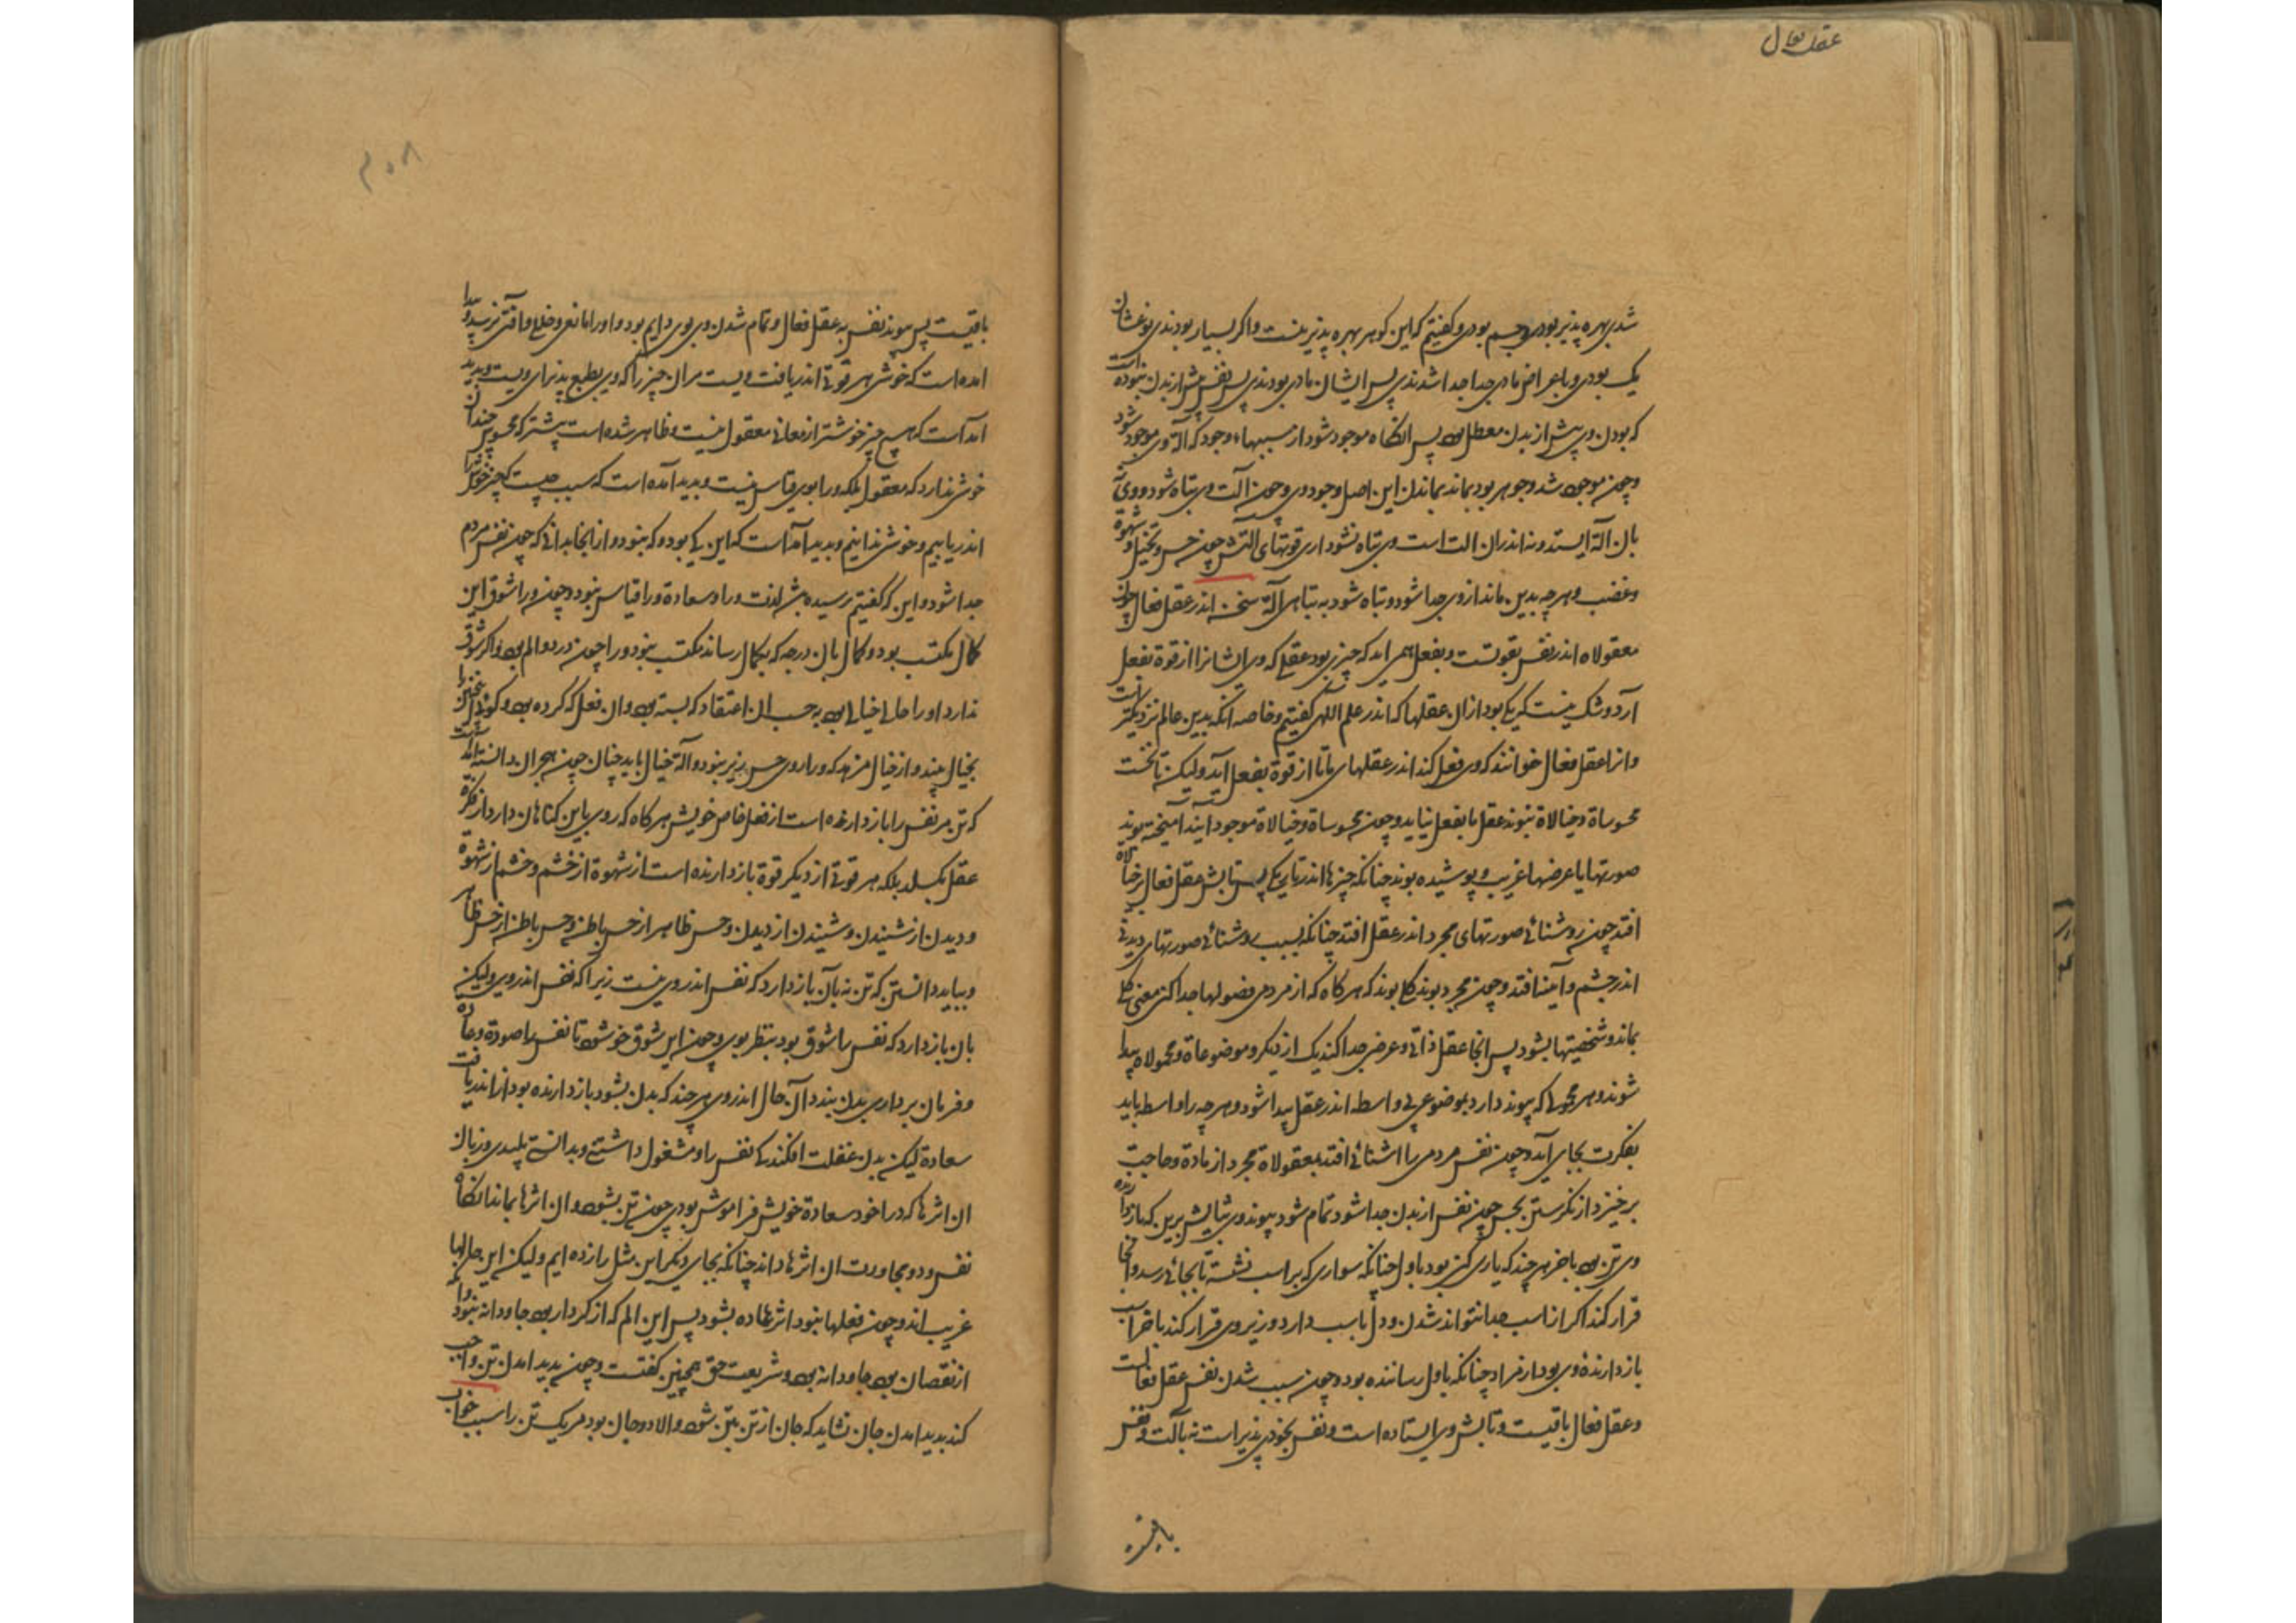 عقل فعال
شدی بهره پذیر بودی و جسم بودی و کفتیم که این کوهر بهره پذیر نیست و اکر بسیار بودندی نوعشان
یک بودی و باعراض مادی جدا جدا شدندی پس ایشان مادی بودندی پس نفس پیش از بدن نبوده است
که بودن وی پیش از بدن معطل بود پس انکاه موجود شود از سببهاء وجود که آلة وی موجود شود
و چون موجود شد و جوهر بود بماند بماندن این اصل وجود وی و چون آلت وی تباه شود و وی نه
بان آلة ایستد و نه اندران الت است وی تباه نشود اری قوتهای التش چون حس و تخیل و شهوة
و غضب و هرچه بدین ماند از وی جدا شود و تباه شود به تباهی آلة سخن اندر عقل فعال چون
معقولاة اندر نفس بقوتست و بفعل همی اید که چیزی بود عقلی که وی ایشانرا از قوة بفعل
آرد و شک نیست که یکی بود ازان عقلها که اندر علم اللهی کفتیم و خاصه انکه بدین عالم نزدیکتر است
و انرا عقل فعال خوانند که وی فعل کند اندر عقلهای ما تا از قوة بفعل اید ولیکن تا نخست
محسوساة و خیالاة نبوند عقل ما بفعل نیاید و چون محسوساة و خیالاة موجود ایند امیخته بوند
صورتها با عرضها غریب و پوشیده بوند چنانکه چیزها اندر تاریکی پس تابش عقل فعال بر خیالاة
افتد چون روشنائی صورتهای مجرد اندر عقل افتد چنانکه بسبب روشنائی صورتهای دیدنی
اندر چشم و آینه افتد و چون مجرد بوند کلی بوند که هرکاه که از مردمی فضولها جدا کنی معنی کلی
بماند و شخصیتها بشود پس انجا عقل ذاتی و عرضی جدا کند یک از دیکر و موضوعاة و محمولاة پیدا
شوند و هر محمولی که پیوند دارد بموضوعی بی واسطه اندر عقل پیدا شود و هرچه را واسطه باید
بفکرت بجای آید و چون نفس مردمی را اشنائی افتد بمعقولاة مجرد از مادة و حاجت
برخیزد از نکرستن بحس چون نفس از بدن جدا شود تمام شود پیوند وی بتابش برین که بازدارنده
وی تن بود باخر هرچند که یاری کن بود باول چنانکه سواری که بر اسب نشسته تا بجائی رسد و انجا
قرار کند اکر از اسب جدا نتواند شدن و دل باسب دارد و زیر وی قرار کند باخر اسب
بازدارندهٔ وی بود از مراد چنانکه باول رساننده بود و چون سبب شدن نفس عقل فعالست
و عقل فعال باقیست و تابش وی ایستاده است و نفس بخودی پذیر است نه بآلت و نفس
باقیست
۳۰۸
باقیست پس پیوند نفس به عقل فعال و تمام شدن وی بوی دایم بود و او را مانعی و خللی و آفتی نرسد و پیدا
امده است که خوشی هر قوتی اندریافت ویست مران چیز را که وی بطبع پذیرای ویست و پدید
امد است که هیچ چیز خوشتر از معانی معقول نیست و ظاهر شده است پیشتر که محسوس چندان
خوشی ندارد که معقول بلکه ورا بوی قیاس نیست و پدید آمده است که سبب چیست که چیز خوش را
اندریابیم و خوشی ندانیم و پدید آمد است که این کی بود و که نبود و از اینجا بدانی که چون نفس مردم
جدا شود و این که کفتیم رسیده باشد لذت ورا و سعادة ورا قیاس نبود و چون ورا شوق این
کمال مکتسب بود و کمال بان درجه که بکمال رساند مکتسب نبود ورا چون درد و الم بود و اکر شوق
ندارد او را حالی خیالی بود به حسب ان اعتقاد که بسته بود وان فعل که کرده بود و کوئی چنین
بخیال بیند و از خیال مزه که ورا روی حس زیر نبود و آلة خیال باید خیال چون هجران دانسته آمد
که تن مر نفس را بازدارنده است از فعل خاص خویش هرکاه که روی باین کناهان دارد از فکرة
عقل بکسلد بلکه هر قوتی از دیکر قوة بازدارنده است از شهوة از خشم و خشم از شهوة
و دیدن از شنیدن و شنیدن از دیدن و حس ظاهر از حس باطن و حس باطن از حس ظاهر
و بباید دانستن که تن نه بآن بازدارد که نفس اندر وی نیست زیرا که نفس اندر وی ولیکن
بان بازدارد که نفس را شوق بود بنظر بوی و چون این شوق خوش شود تا نفس را صورة و عادة
و فرمان برداری بدن بندد آن حال اندر وی هرچند که بدن بشود بازدارنده بود از اندریافت
سعادة لیکن بدن غفلت افکند که نفس را و مشغول داشتی و بدانستی پلیدی و زیان
ان اثرها که در اخود سعادة خویش فراموش بودی چون تن بشود وان اثرها بماند انکاه
نفس درد و مجاورت ان اثرها داند چنانکه بجای دیکر این مثل را زده ایم ولیکن این حالها
غریب اند و چون فعلها نبود اثرها ده بشود پس این الم که از کردار بود جاودانه نبود و انکه
از نقصان بود جاودانه بود و شریعت حق همچنین کفتست و چون پدید امدن تن واجب
کند پدید امدن جان نشاید که جان از تن بتن شود والا دو جان بود مر یک تن را سبب خواب